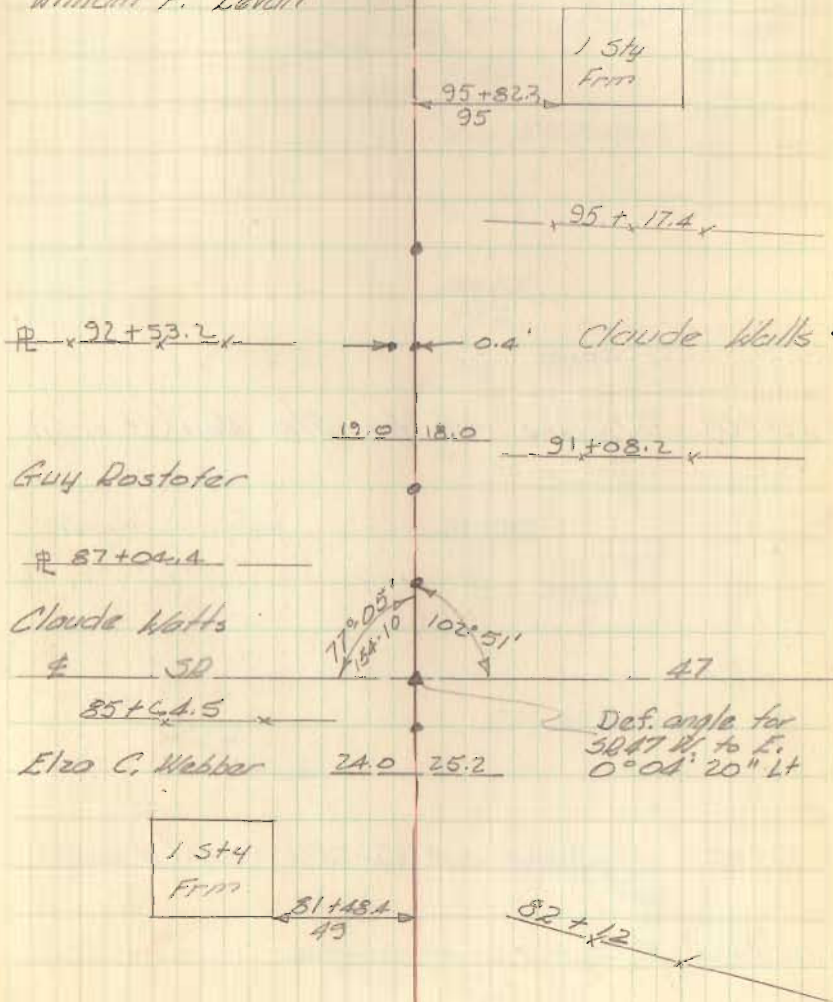 William F. Levan
1 Sty
Frm
95+82.3
95
95+17.4
℄ 92+53.2
0.4'
Claude Watts
19.0 18.0
91+08.2
Guy Rostofer
℄ 87+04.4
77°05'
154-10
102°51'
Claude Watts
℄ SR 47
85+64.5
Def. angle for
SR47 W. to E.
0°04'20" Lt
Elzo C. Webber
24.0 25.2
1 Sty
Frm
81+48.4
49
82+12